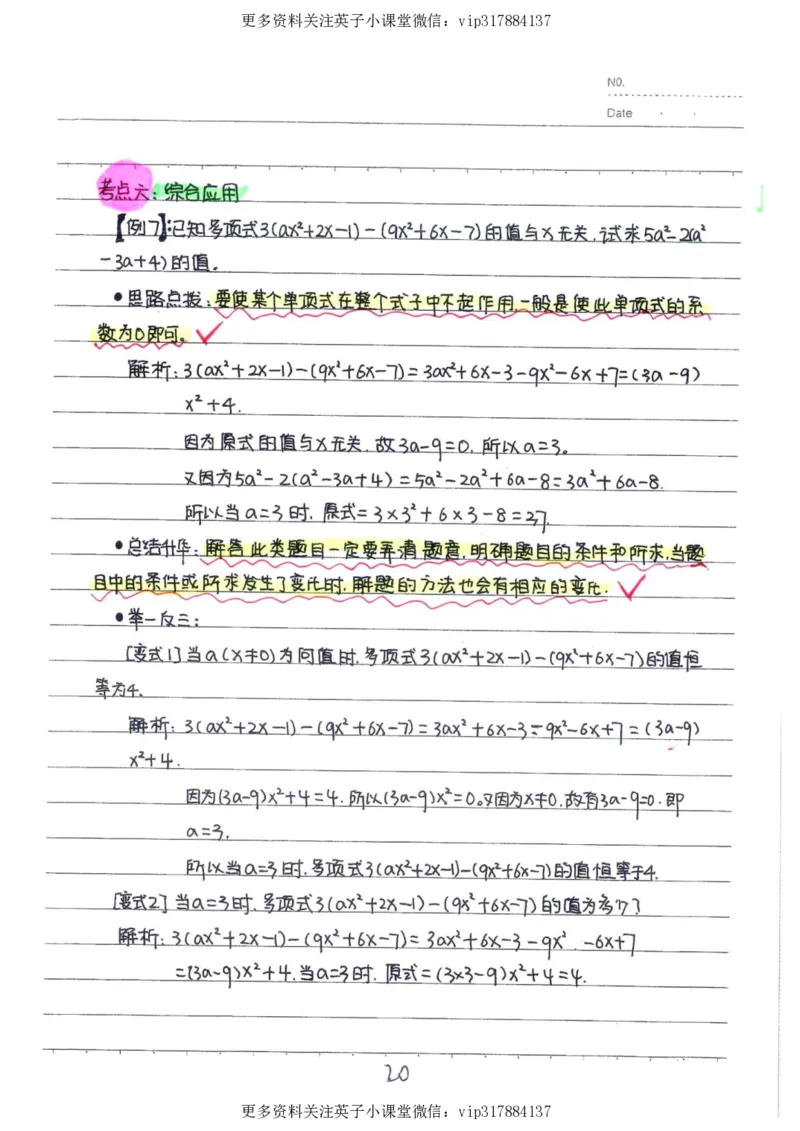 更多资料关注英子小课堂微信：vip317884137
NO.
Date
考点六：综合应用
【例7】已知多项式3(ax²+2x-1)-(9x²+6x-7)的值与x无关,试求5a²-2(a²
-3a+4)的值。
•思路点拨：要使某个单项式在整个式子中不起作用,一般是使此单项式的系
数为0即可。
解析：3(ax²+2x-1)-(9x²+6x-7)=3ax²+6x-3-9x²-6x+7=(3a-9)
x²+4.
因为原式的值与x无关,故3a-9=0,所以a=3。
又因为5a²-2(a²-3a+4)=5a²-2a²+6a-8=3a²+6a-8.
所以当a=3时,原式=3×3²+6×3-8=37.
•总结升华：解答此类题目一定要弄清题意,明确题目的条件和所求,当题
目中的条件或所求发生了变化时,解题的方法也会有相应的变化.
•举一反三：
[变式1]当a(x≠0)为何值时,多项式3(ax²+2x-1)-(9x²+6x-7)的值恒
等为4.
解析：3(ax²+2x-1)-(9x²+6x-7)=3ax²+6x-3-9x²-6x+7=(3a-9)
x²+4.
因为(3a-9)x²+4=4,所以(3a-9)x²=0。又因为x≠0,故有3a-9=0.即
a=3.
所以当a=3时,多项式3(ax²+2x-1)-(9x²+6x-7)的值恒等于4.
[变式2]当a=3时,多项式3(ax²+2x-1)-(9x²+6x-7)的值为多少?
解析：3(ax²+2x-1)-(9x²+6x-7)=3ax²+6x-3-9x²-6x+7
=(3a-9)x²+4.当a=3时,原式=(3×3-9)x²+4=4.
20
更多资料关注英子小课堂微信：vip317884137